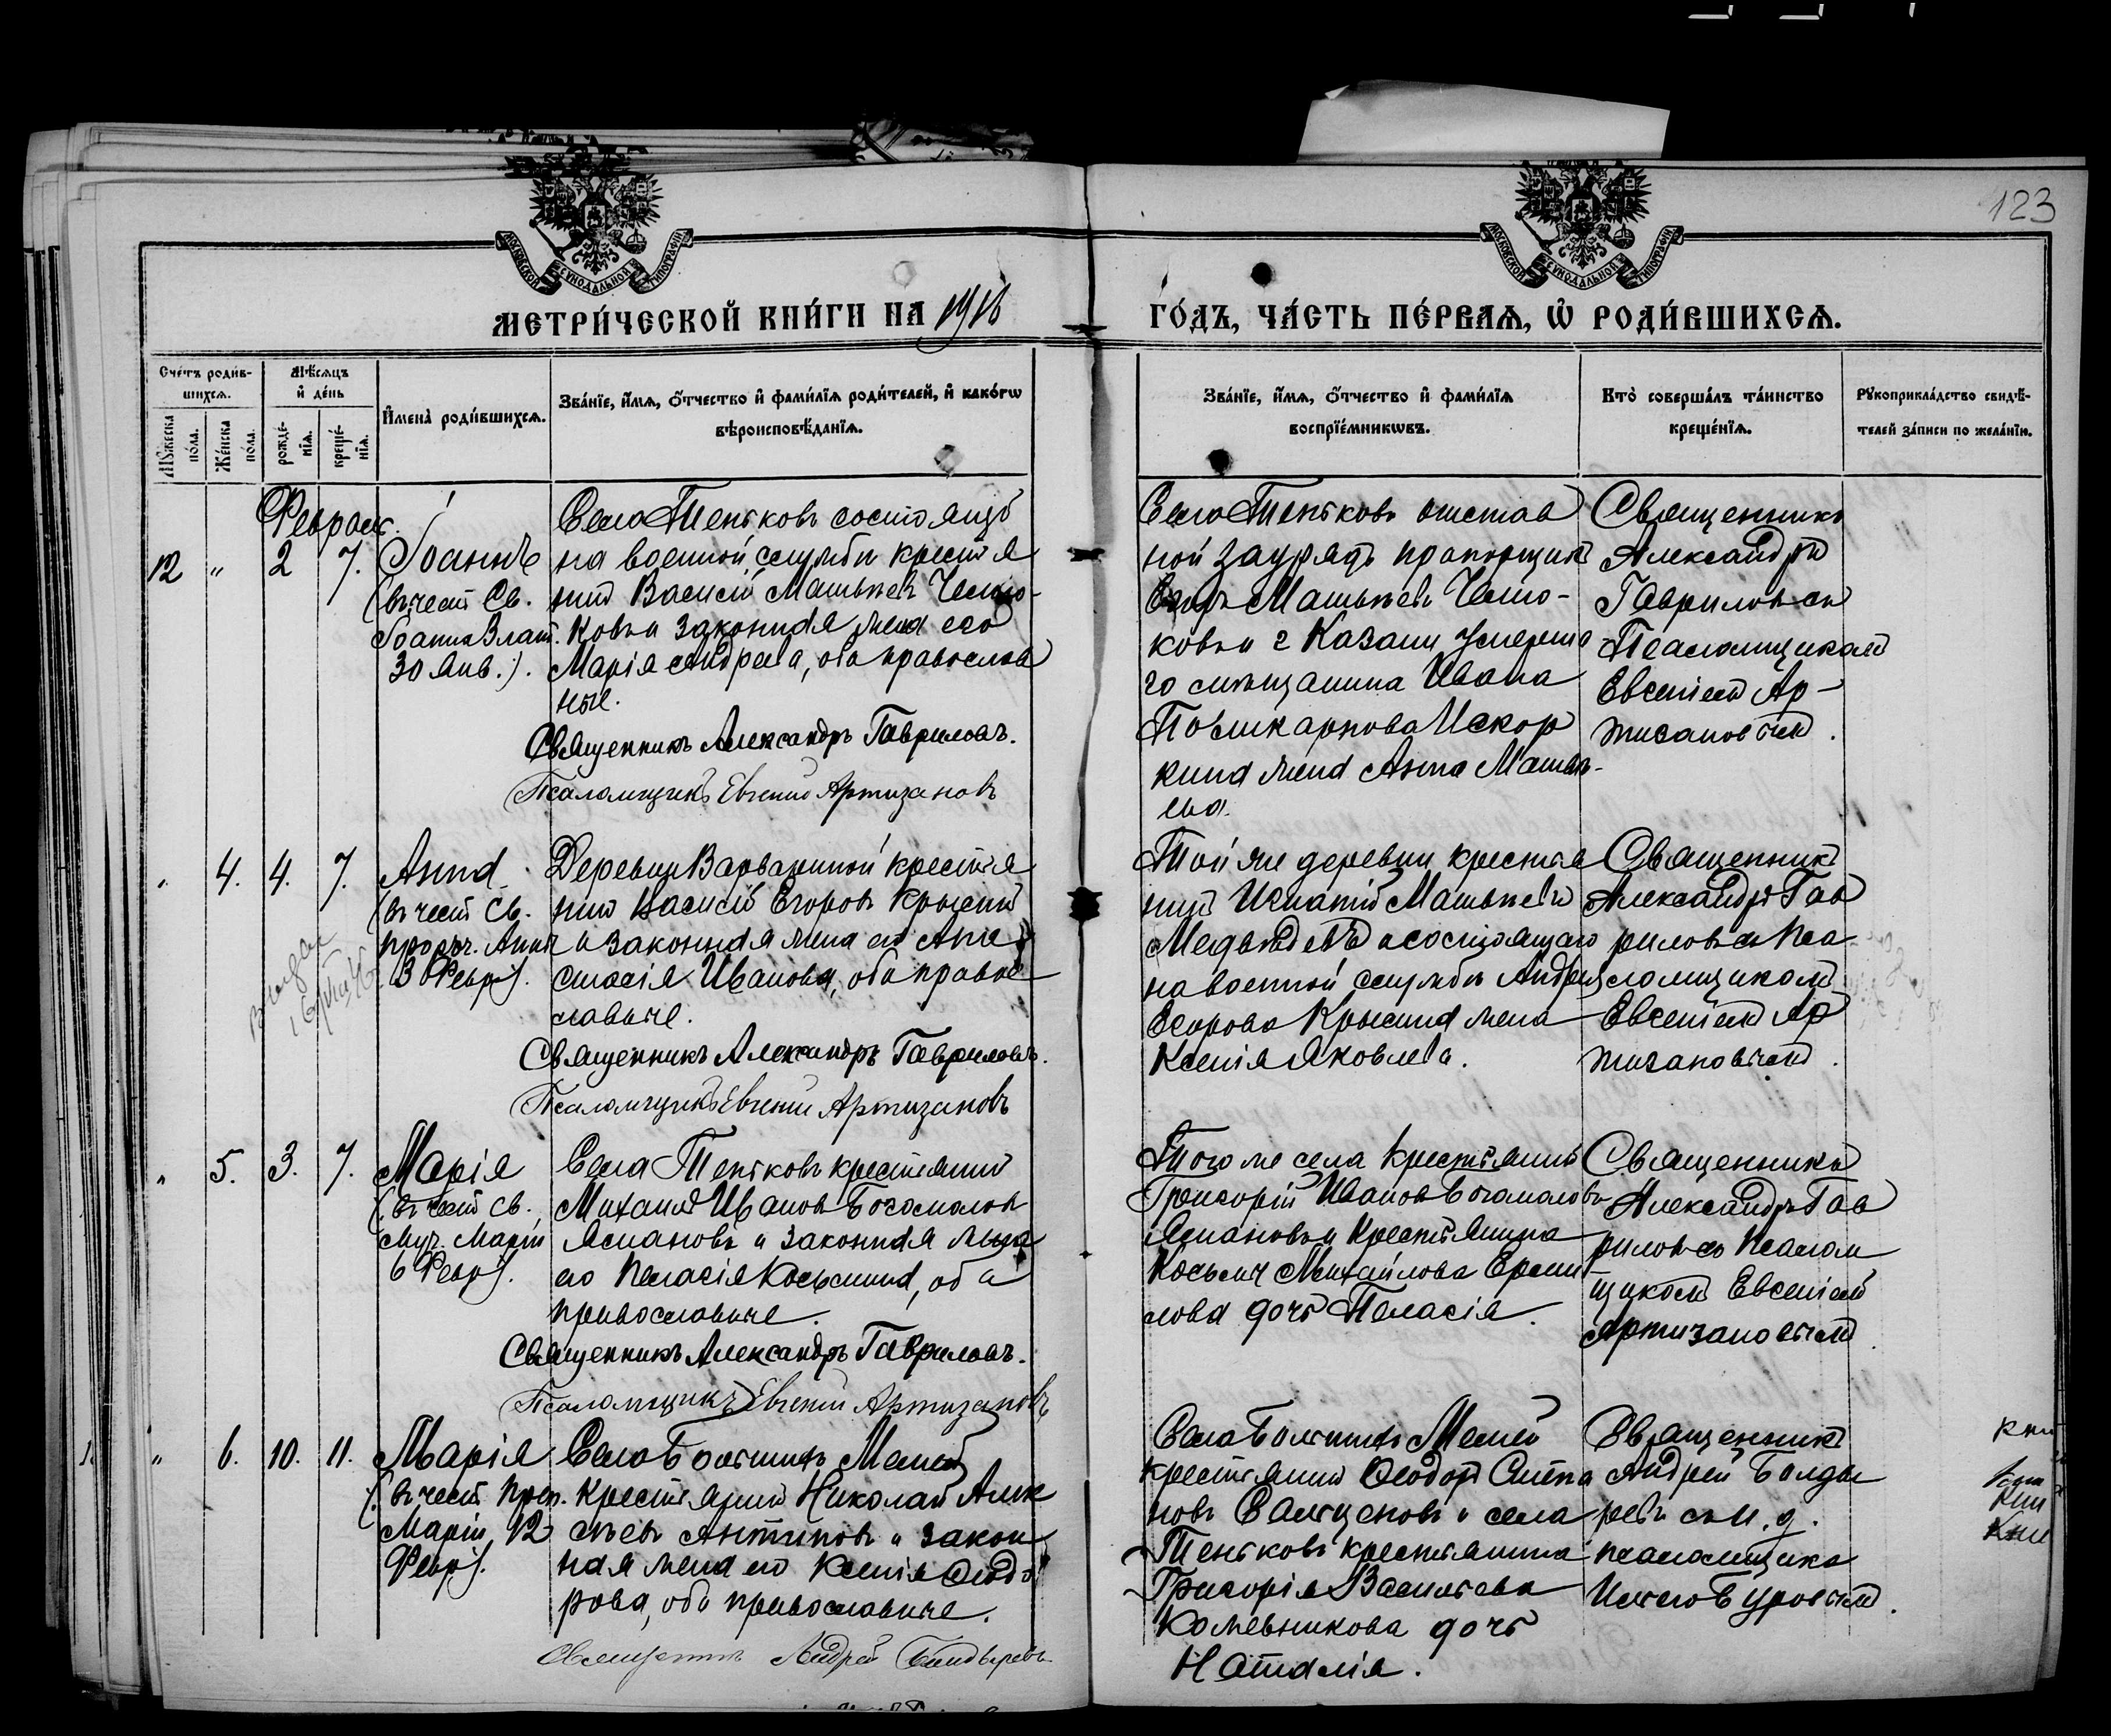 123
МОСКОВСКОЙ СУНОДАЛЬНОЙ ТИПОГРАФІИ
МОСКОВСКОЙ СУНОДАЛЬНОЙ ТИПОГРАФІИ
МЕТРИ́ЧЕСКОЙ КНИ́ГИ НА 1916
ГО́ДЪ, ЧА́СТЬ ПЕ́РВАѦ, Ѡ҆ РОДИ́ВШИХСѦ.
Сче́тъ роди́в-
шихсѧ.
Мꙋ́жеска по́ла.
Же́нска по́ла.
Мѣ́сѧцъ
и҆ де́нь
рожде́-
нїѧ.
креще́-
нїѧ.
И҆мена̀ роди́вшихсѧ.
Зва́нїе, и҆́мѧ, ѻ҆́тчество и҆ фами́лїѧ роди́телей, и҆ како́гѡ
вѣроисповѣ́данїѧ.
Зва́нїе, и҆́мѧ, ѻ҆́тчество и҆ фами́лїѧ
воспрїе́мникѡвъ.
Кто̀ соверша́лъ та́инство
креще́нїѧ.
Рꙋкоприкла́дство свидѣ́-
телей за́писи по жела́нїю.
Февраль.
12 " 2 7. Іоаннъ
(въ честь Св.
Іоанна Злат.
30 Янв.).
Села Теньковъ состоящій
на военной службѣ крестья
нинъ Василій Матвѣевъ Челно-
ковъ и законная жена его
Марія Андреева, оба православ
ные.
Священникъ Александръ Гавриловъ.
Псаломщикъ Евгеній Артизановъ
Села Теньковъ отстав
ной заурядъ прапорщикъ
Матвѣевъ Челно-
ковъ и г Казани умерша
го мѣщанина Ивана
Поликарпова Искор
кина жена Анна Матвѣ-
ева.
Священникъ
Александръ
Гавриловъ съ
Псаломщикомъ
Евгеніемъ Ар-
тизановымъ.
" 4. 4. 7. Анна
(въ честь Св.
пророч. Анны
3 Февр.).
Деревни Варвариной крестья
нинъ Василій Егоровъ Крысинъ
и законная жена его Ана
стасія Иванова, оба право
славные.
Священникъ Александръ Гавриловъ.
Псаломщикъ Евгеній Артизановъ
Той же деревни крестья
нинъ Игнатій Матвѣевъ
Медвѣдевъ и состоящаго
на военной службѣ Андрея
Егорова Крысина жена
Ксенія Яковлева.
Священникъ
Александръ Гав
риловъ съ Пса
ломщикомъ
Евгеніемъ Ар
тизановымъ.
" 5. 3. 7. Марія
(въ честь Св.
муч. Маріи
6 Февр.).
Села Теньковъ крестьянинъ
Михаилъ Ивановъ Богомоловъ
Аспановъ и законная жена
его Пелагія Косьмина, оба
православные.
Священникъ Александръ Гавриловъ.
Псаломщикъ Евгеній Артизановъ
Того же села крестьянинъ
Григорій Ивановъ Богомоловъ
Аспановъ и крестьянина
Косьмы Михайлова
дочь Пелагія.
Священникъ
Александръ Гав
риловъ съ Псалом
щикомъ Евгеніемъ
Артизановымъ
" 6. 10. 11. Марія
(въ честь Преп.
Маріи 12
Февр.).
Села Большихъ Мемей
крестьянинъ Николай Алек
сѣевъ Антиповъ и закон
ная жена его Ксенія Ѳеодо
рова, оба православные.
Священникъ Андрей Болдыревъ
Села Большихъ Мемей
крестьянинъ Ѳеодоръ Степа
новъ и села
Теньковъ крестьянина
Григорія Васильева
Кожевникова дочь
Наталія.
Священникъ
Андрей Болды
ревъ съ И. д.
псаломщика